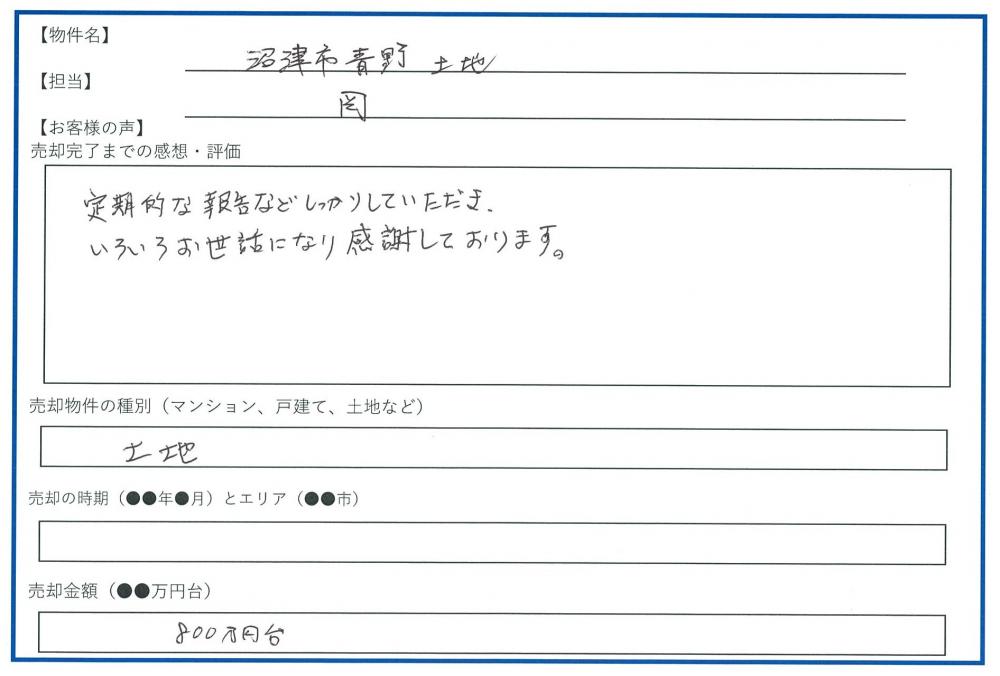 【物件名】
沼津市青野 土地
【担当】
岡
【お客様の声】
売却完了までの感想・評価
定期的な報告などしっかりしていただき、
いろいろお世話になり感謝しております。
売却物件の種別（マンション、戸建て、土地など）
土地
売却の時期（●●年●月）とエリア（●●市）
売却金額（●●万円台）
800万円台